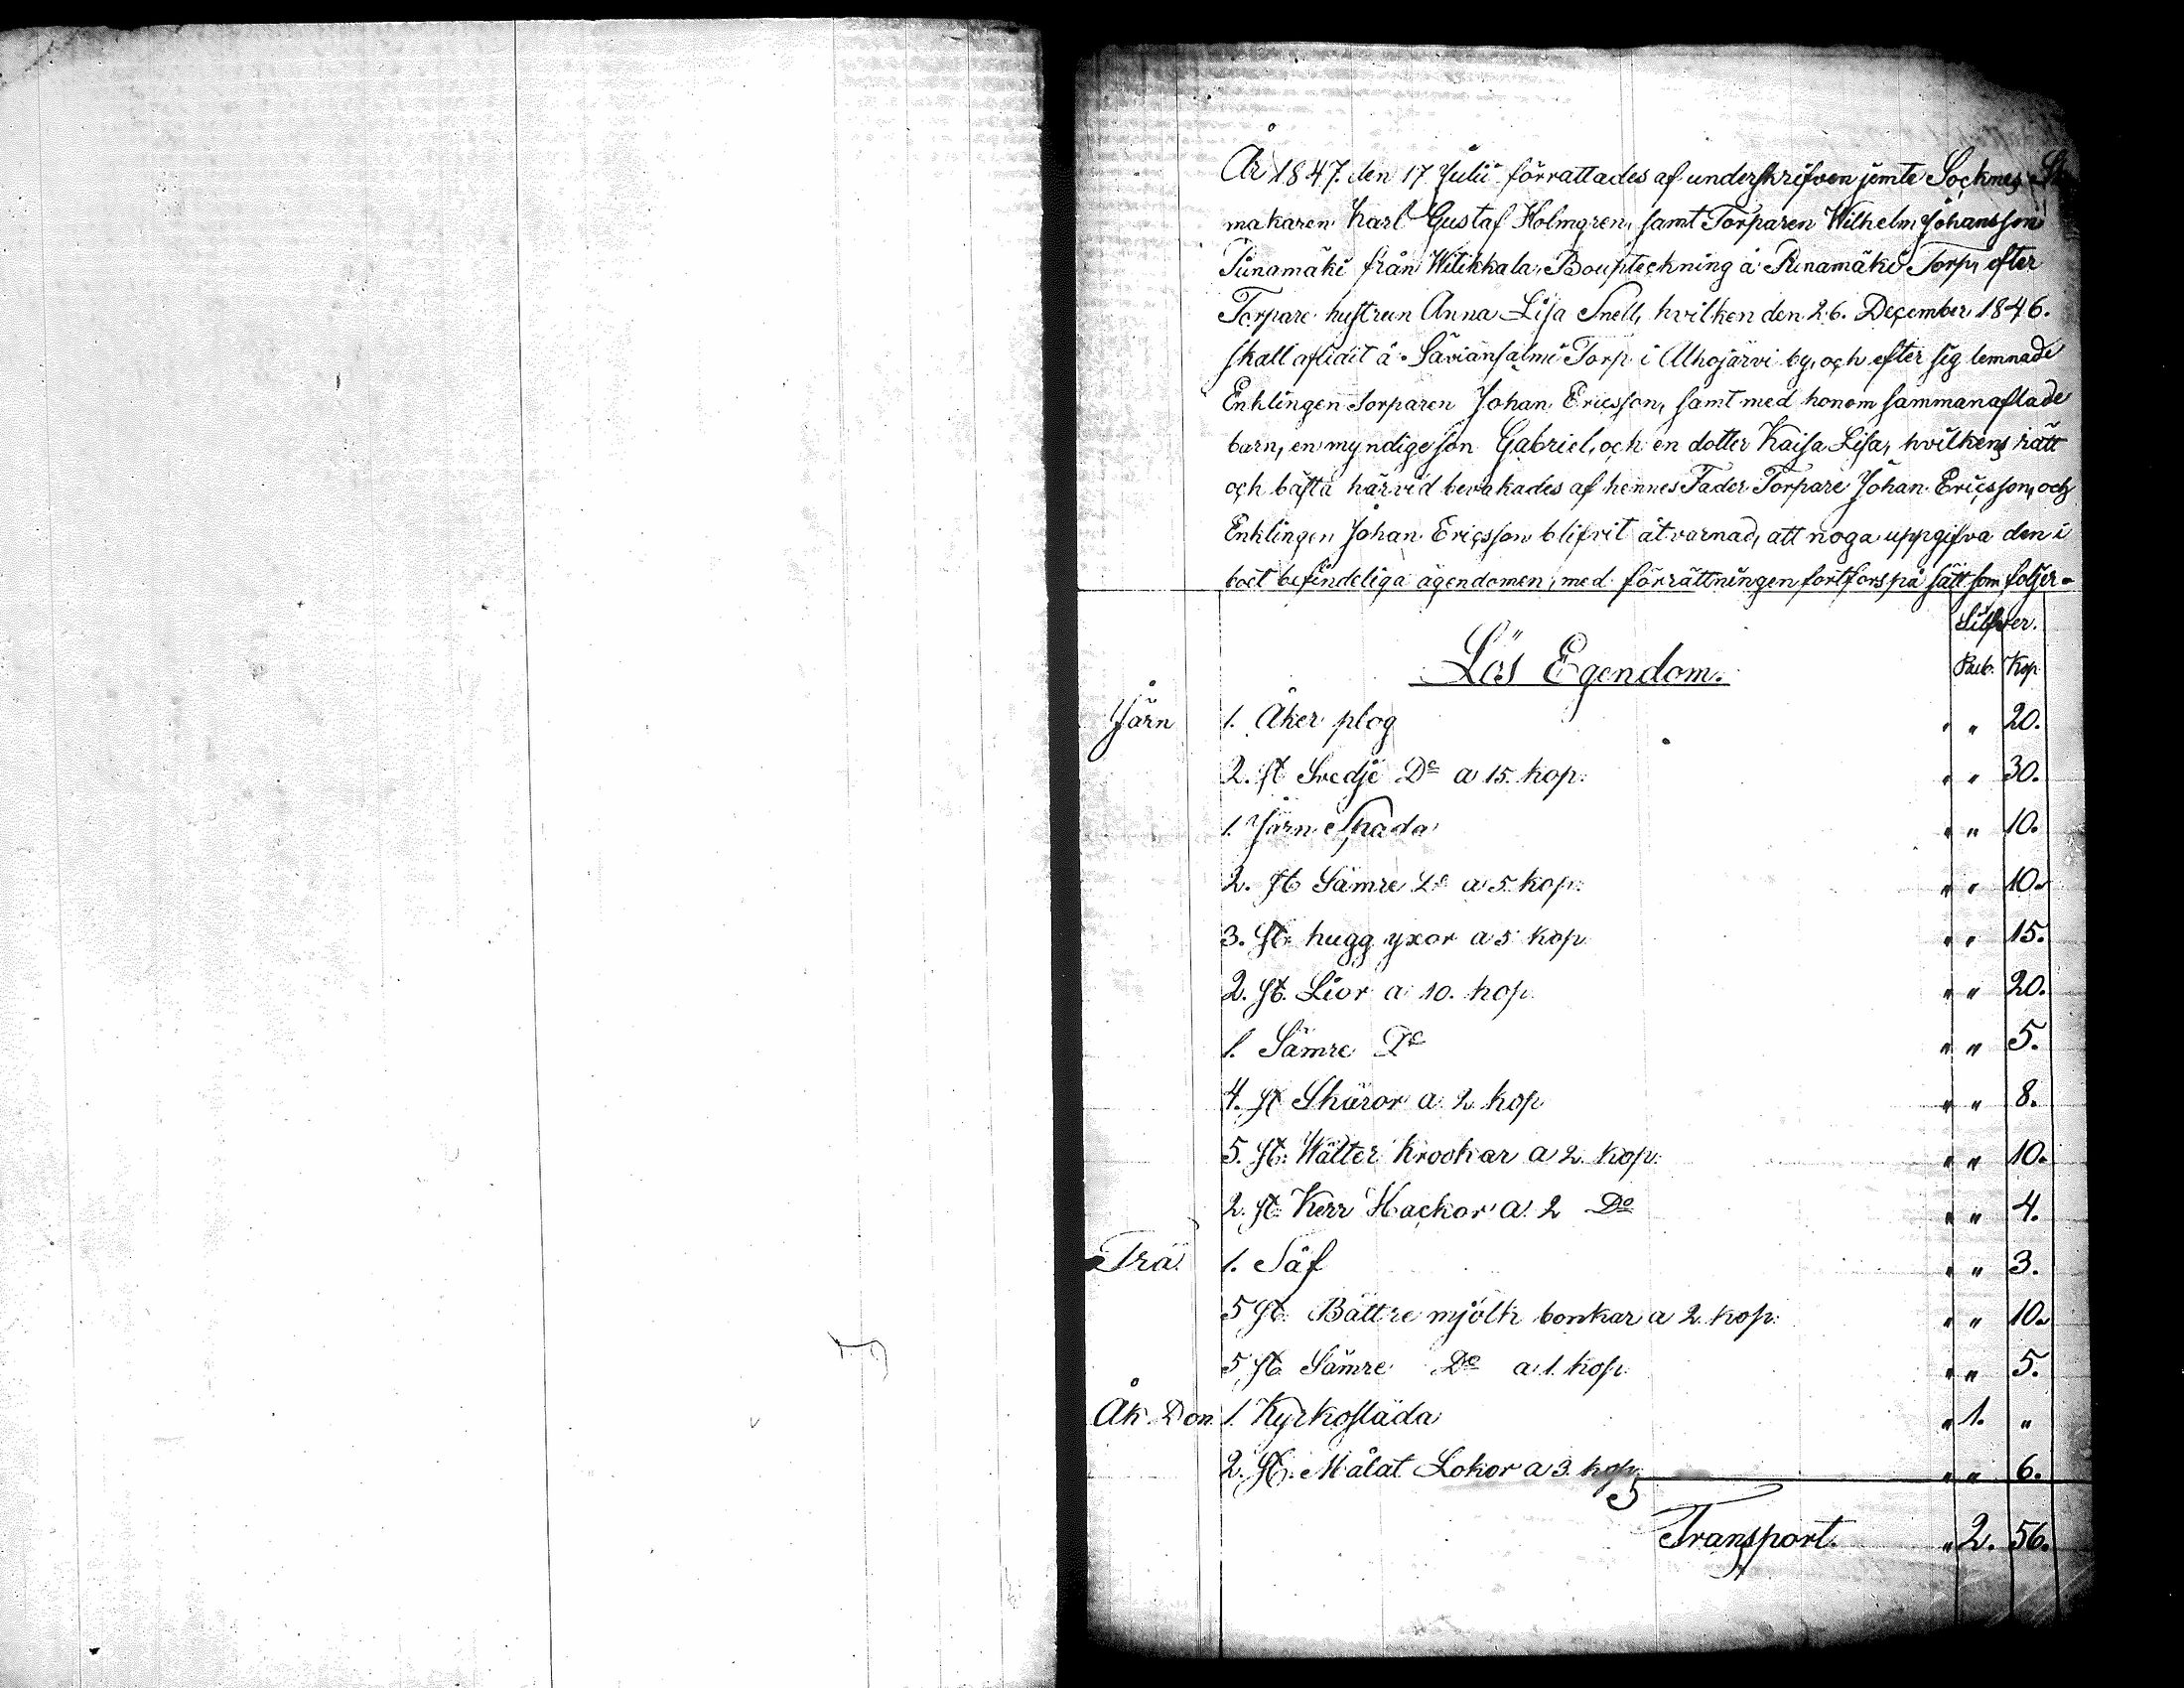 År 1847. den 17 Julii förrattades af underskrifven jemte Sockne,
makaren Karl Gustaf Holmgren, samt Torparen Wilhelm Johansson
från Witikkala, Bouptekning å Torp, efter
Torpare hustrun Anna Lisa Snell, hvilken den 26. December 1846.
skall aflidit å Saviansalmi Torp i Alhojärvi by, och efter sig lemnade
Enklingen Torparen Johan Ericsson, samt med honom sammanaflade
barn, en myndige son Gabriel, och en dotter Kaisa Lisa, hvilkens rätt
och bästa härvid bevakades af hennes Fader Torpare Johan Ericsson, och
Enklingen Johan Ericsson blifvit åtvarnad, att noga uppgifva den i
boet befindeliga ägendomen, med förrättningen fortfors på sätt som följer=
Silfver.
Lös Egendom. Rub. Kop
Järn 1. Åker plog " " 20.
2. st Svedje Do a 15. kop: " " 30.
1. Järn Spada " " 10.
2. st Sämre Do a 5. kop: " " 10.
3. st hugg yxor a 5 kop " " 15.
2. st. Lior a 10. kop. " " 20.
1. Sämre Do " " 5.
4. st Skäror a 2 kop " " 8.
5. st: Wälter krookar a 2. kop: " " 10.
2. st: Kerr Hackor a 2 Do " " 4.
Trä 1. Såf " " 3.
5 st: Bättre mjölk bonkar a 2. kop: " " 10.
5 st. Sämre Do a 1. kop. " " 5.
Åk Don 1. Kyrkosläda " 1. "
2. st: Målat Lokor a 3. kop. " " 6.
Transport. " 2. 56.